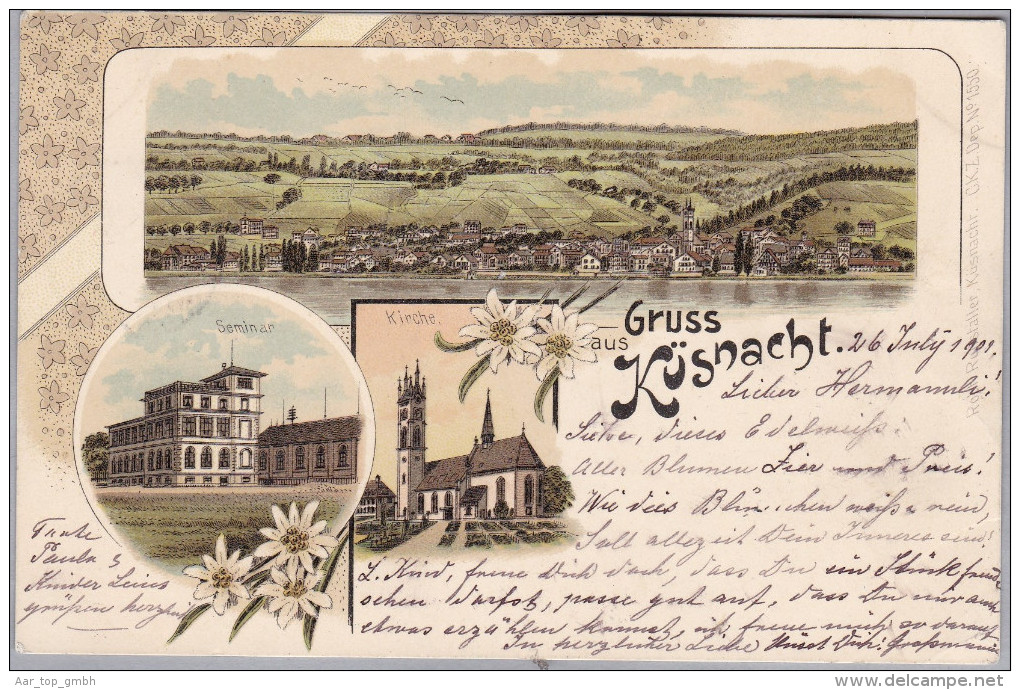 Seminar
Kirche.
Gruss
aus
Küsnacht.
26 July 1901.
Lieber Hermannli!
Siehe, dieses Edelweiss:
Aller Blumen Zier und Preis!
Wie dies Blümchen weiss u rein,
Soll allezeit Dein Inneres sein!
L. Kind, freue Dich doch, dass Du ein Stück
schen darfst, passe gut auf, dass Du mir auch
etwas erzählen kannst, ich freue mich so darauf
In herzlicher Liebe Küsst Dich: Grossmama
Tante
Paula &
Kinder
grüssen herzlich
Küsnacht. CKZ Dep. No 1530.
Aar_top_gmbh
delcampe.net